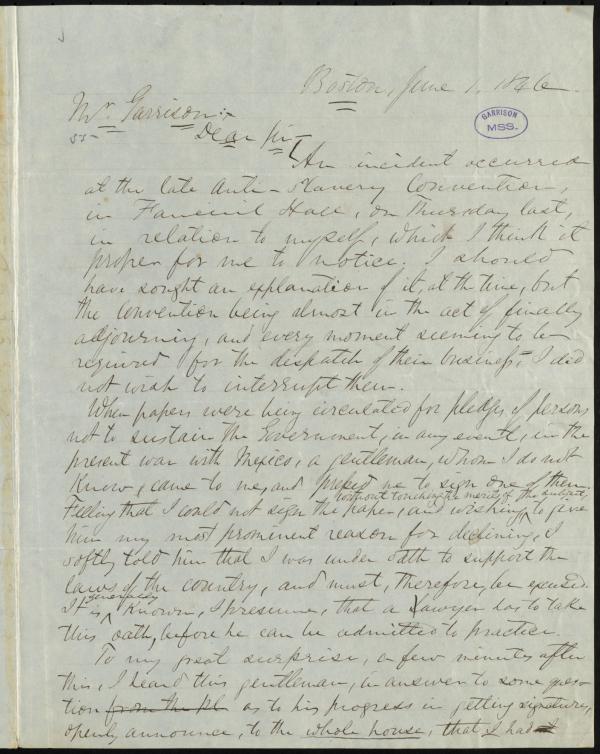 Boston, June 1. 1846.
GARRISON
MSS.
Mr. Garrison:-
Dear Sir-
An incident occurred
at the late Anti-Slavery Convention,
in Faneuil Hall, on Thursday last,
in relation to myself, which I think it
proper for me to notice. I should
have sought an explanation of it, at the time, but
the convention being almost in the act of finally
adjourning, and every moment seeming to be
required for the dispatch of their business, I did
not wish to interrupt them.
When papers were being circulated for pledges of persons
not to sustain the Government, in any event, in the
present war with Mexico, a gentleman, whom I do not
know, came to me, and me to sign one of them.
without touching the merits of the subject,
Feeling that I could not sign the paper, and wishing to give
him my most prominent reason for declining, I
softly told him that I was under oath to support the
laws of the country, and must, therefore, be excused.
generally
It is known, I presume, that a Lawyer has to take
this oath, before he can be admitted to practice.
To my great surprise, a few minutes after
this, I heard this gentleman, in answer to some ques-
tion from the Pl as to his progress in getting signatures,
openly announce, to the whole house, that I had